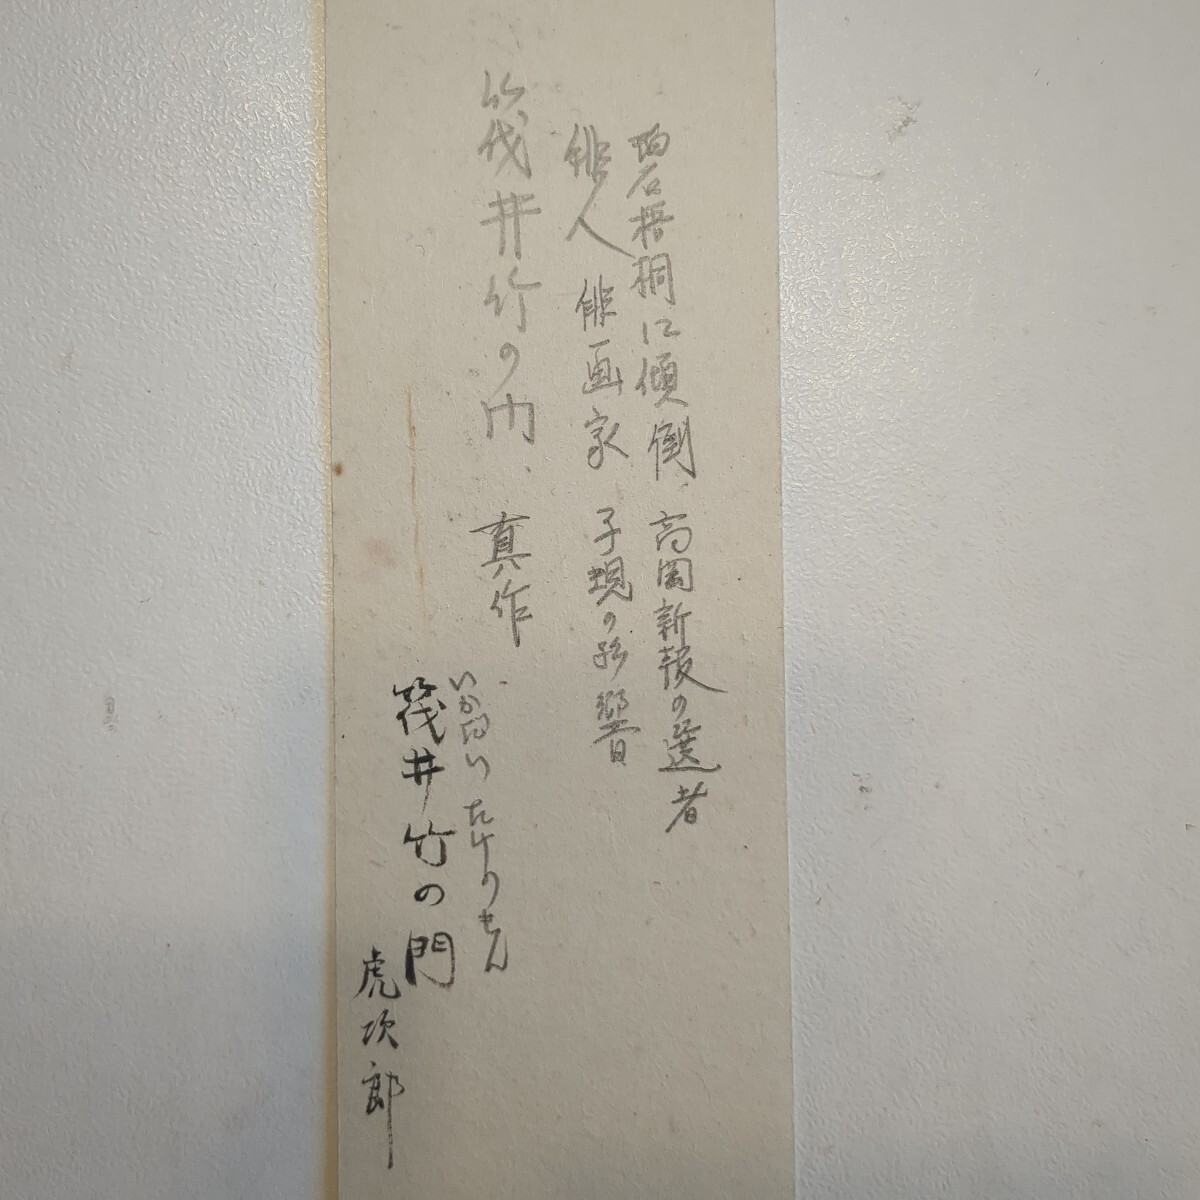 碧梧桐に傾倒、高岡新報の選者
俳人 俳画家 子規の影響
筏井竹の门、真作
いかだいたけのもん
筏井竹の門
虎次郎